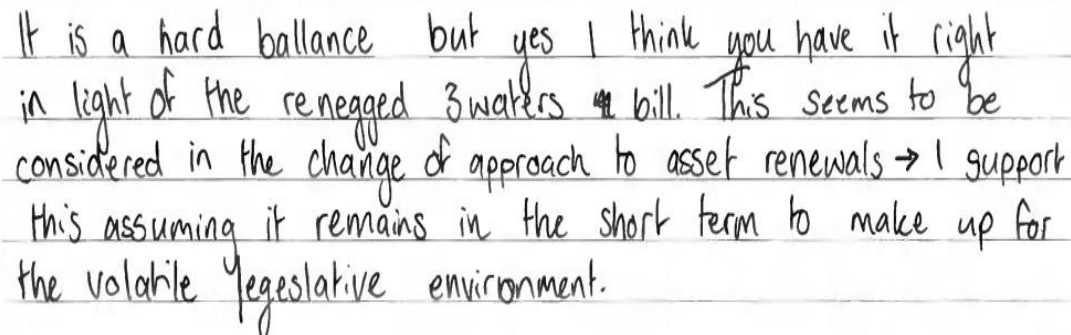 It is a hard ballance but yes I think you have it right
in light of the renegged 3waters bill. This seems to be
considered in the change of approach to asset renewals → I support
this assuming it remains in the short term to make up for
the volatile legeslative environment.